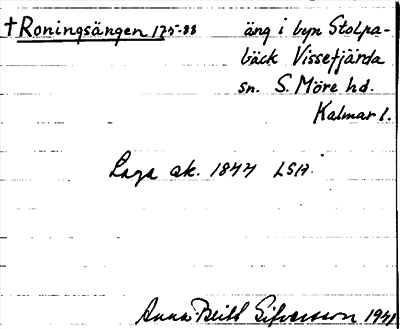 †Roningsängen 125-88 äng i byn Stolpa-
bäck Vissefjärda
sn. S. Möre hd.
Kalmar l.
Laga sk. 1844 LSA.
Anna-Britt Sifvarsson 1941